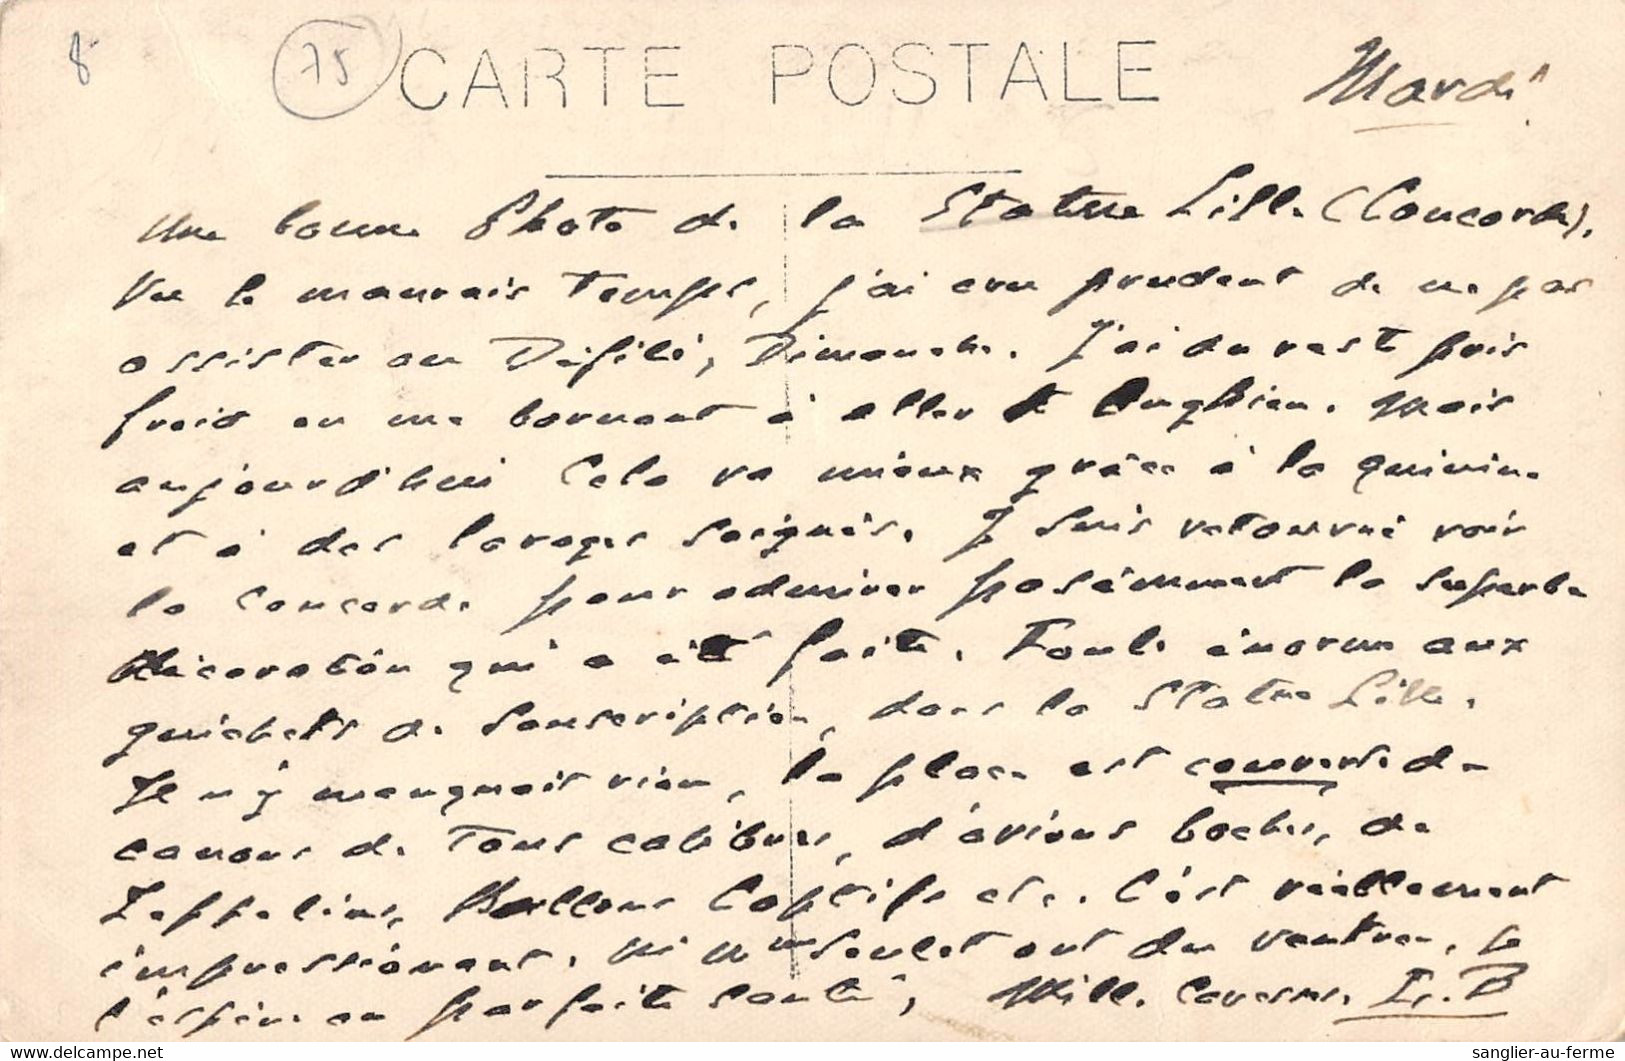 8
75
CARTE POSTALE
Mardi
Une bonne Photo de la Statue Lille (Concorde).
Vu le mauvais temps, j'ai cru prudent de ne pas
assister au Défilé, Dimanche. J'ai du reste pris
froid en me bornant à aller à Enghien. Mais
aujourd'hui Cela va mieux grâce à la quinine
et à des lavages soignés. Je suis retourné voir
la Concorde pour admirer posémment la superbe
décoration qui a été faite. Foule énorme aux
guichets de Souscription, dans la Statue Lille.
Il n'y manquait rien, la place est couverte de
canons de tous calibres, d'avions boches, de
Zeppelins, Ballons Captifs etc. C'est réellement
impressionnant. Mr Mme Soulet ont du rentrer, je
l'espère en parfaite santé, Mille Caresses.
sanglier-au-ferme
www.delcampe.net